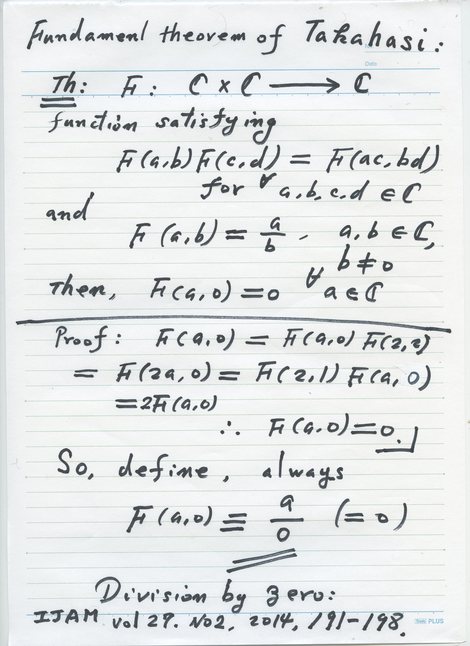 Fundament theorem of Takahasi:
Date
Th: F: ℂ × ℂ ⟶ ℂ
function satisfying
F(a,b) F(c,d) = F(ac, bd)
for ∀ a,b,c,d ∈ ℂ
and
F(a,b) = a/b, a,b ∈ ℂ,
b ≠ 0
Then, F(a,0) = 0 ∀ a ∈ ℂ
Proof: F(a,0) = F(a,0) F(2,2)
= F(2a,0) = F(2,1) F(a,0)
= 2F(a,0)
∴ F(a,0) = 0.
So, define, always
F(a,0) ≡ a/0 (=0)
Division by zero:
IJAM vol 27. No2, 2014, 191-198.
PLUS